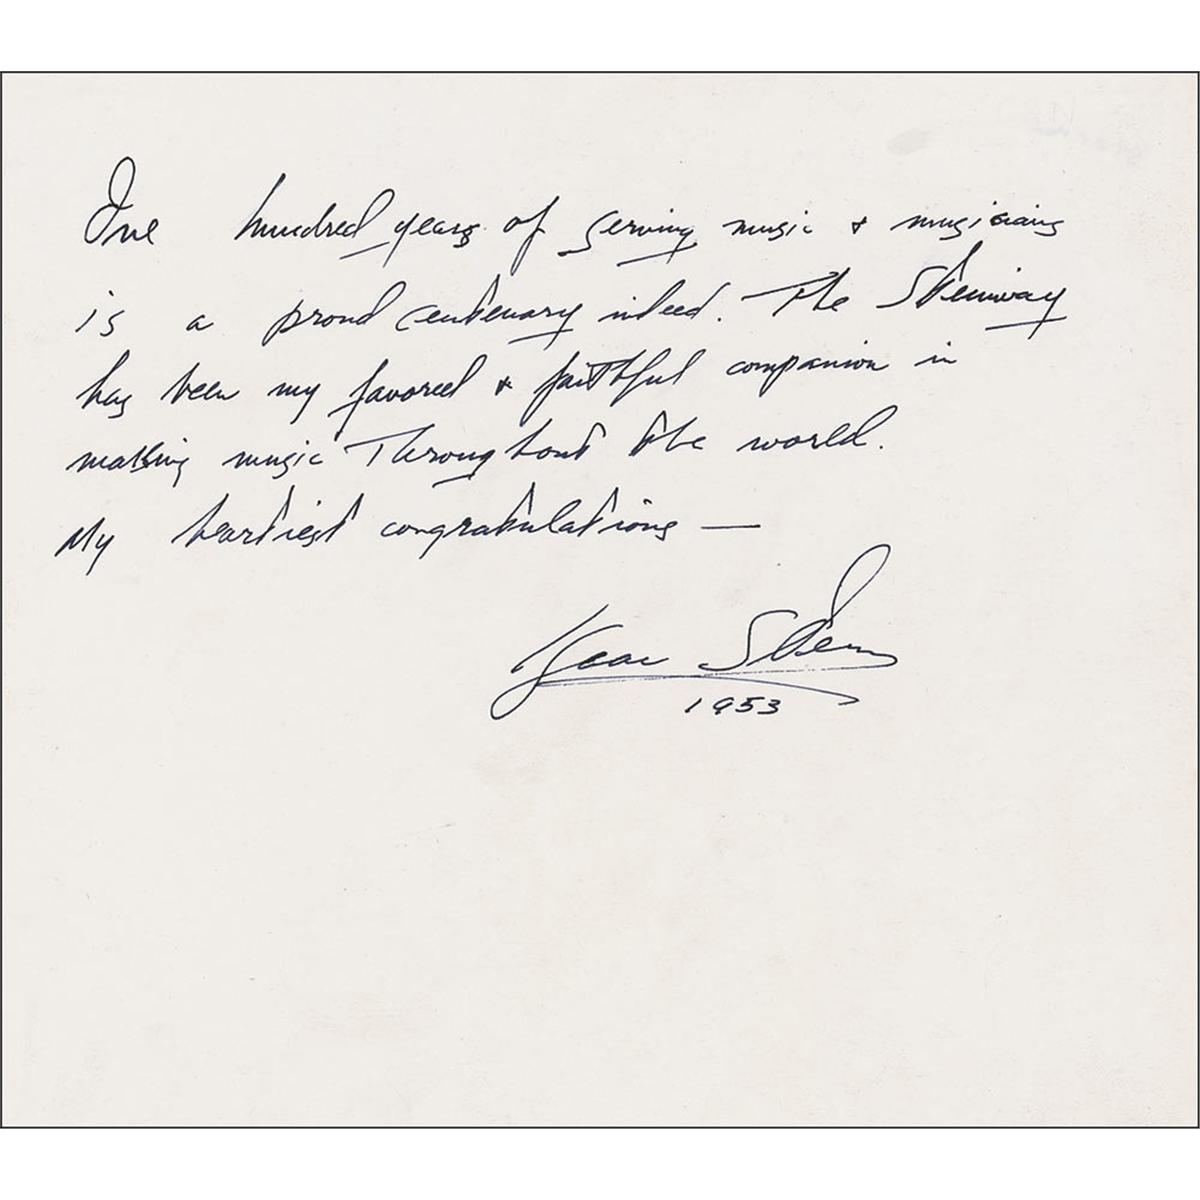 One hundred years of serving music & musicians
is a proud centenary indeed. The Steinway
has been my favored & faithful companion in
making music throughout the world.
My heartiest congratulations —
Isaac Stern
1953